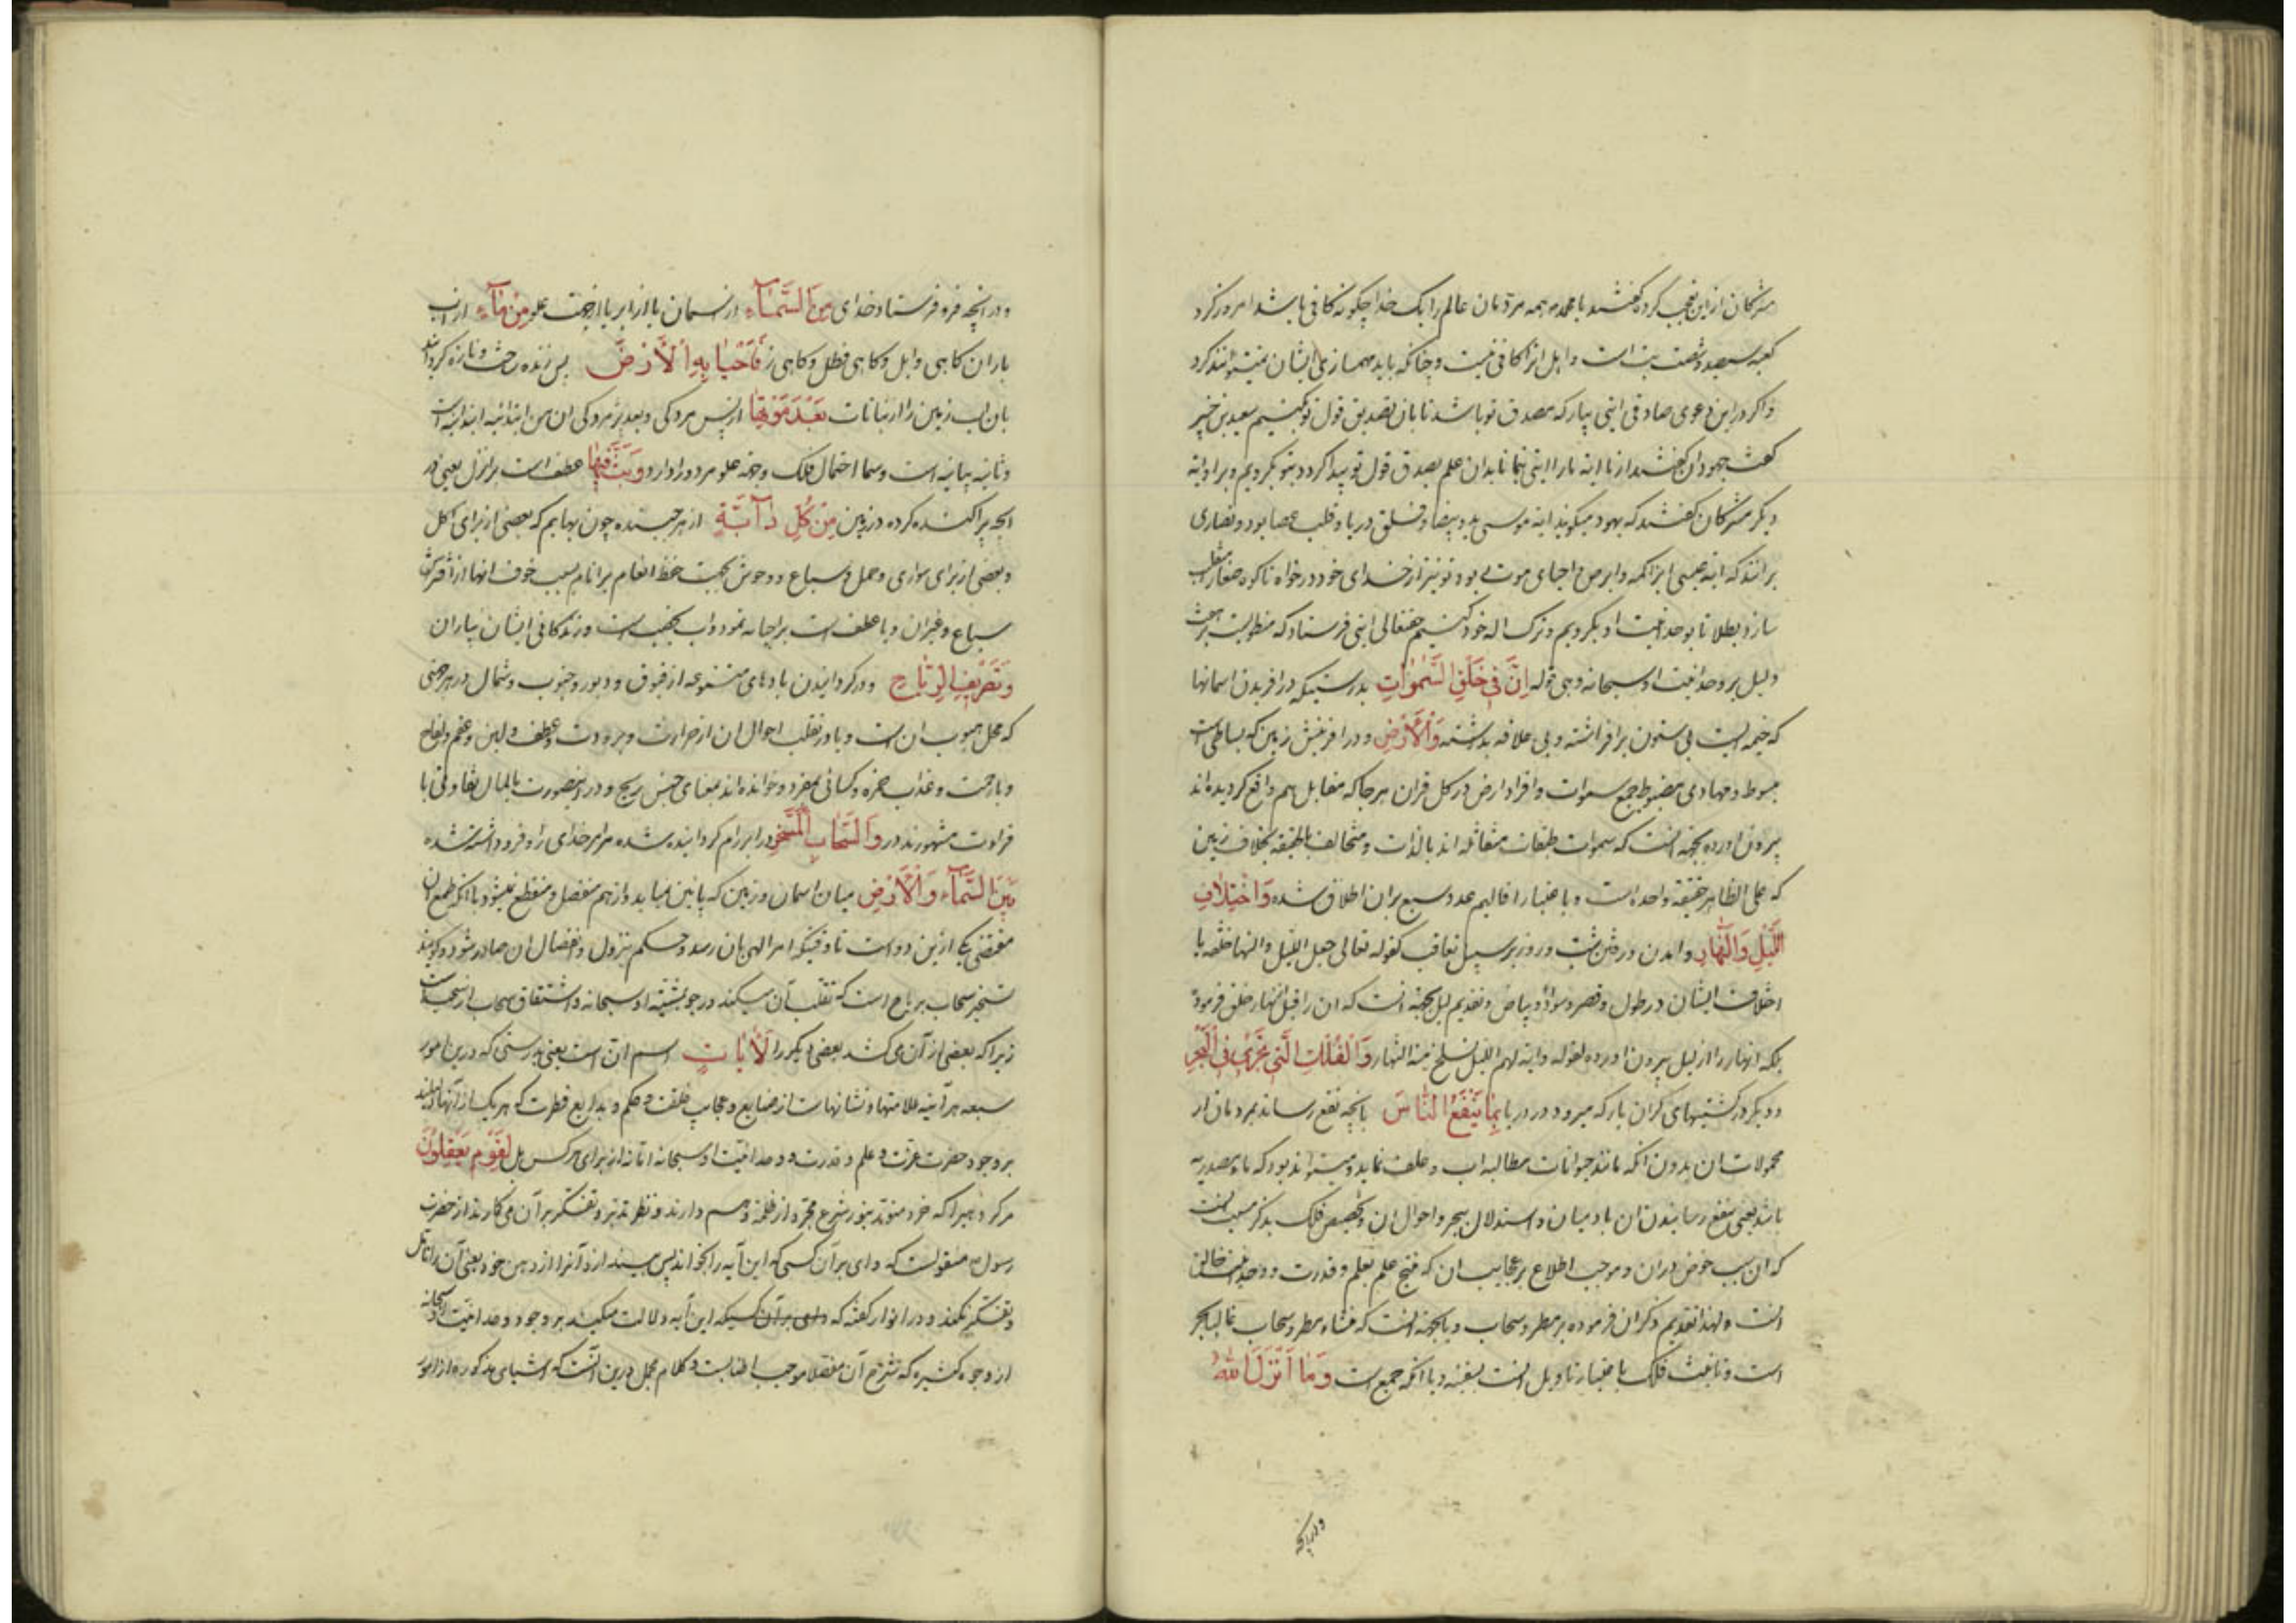 مشرکان ازین تعجب کرده گفتند یا محمد همه مردمان عالم را یک خدا چگونه کافی باشد امروز کرد
کعبه سیصد و شصت بت است و اهل انرا کافی نیست و چنانکه باید مهمسازی ایشان نمیتوانند کرد
و اگر درین دعوی صادقی ایتی بیار که مصدق تو باشد تا بان تصدیق قول تو کنیم سعید بن جبیر
گفت جهودان گفتند از ما ایتی بنما تا بدان علم بصدق قول تو پیدا کرد و بتو بکرویم و بروایة
دیگر مشرکان گفتند که یهود میگویند ایة موسی ید و بیضا و فلق دریا و قلب عصا بود و نصاری
برانند که ایة عیسی ابرا اکمه و ابرص و احیای موتی بود تو نیز از خدای خود درخواه تا کوه صفا را منقلب
سازد بطلا تا بوحدانیت او بکرویم و ترک اله خود کنیم حقتعالی ایتی فرستاد که منطویست بر هشت
دلیل بر وحدانیت او سبحانه وهی قوله اِنَّ فی خَلْقِ السَّمٰوٰاتِ بدرستیکه در افریدن اسمانها
که خیمه ایست بی ستون برافراشته و بی علاقه بداشته وَالْاَرْضِ و در افرینش زمین که بساطی است
مبسوط و مهادی مضبوط جمع سموات و افراد ارض در کل قران هرجا که مقابل هم واقع کردیده اند
بیرون اورده بجهة انست که سموات طبقات متفاصله اند بالذات و متخالفة بالحقیقه بخلاف زمین
که علی الظاهر حقیقة واحده است و باعتبار اقالیم عدد سبع بران اطلاق شده وَاخْتِلافِ
اللَّیْلِ وَالنَّهٰارِ و امدن و رفتن شب و روز بر سبیل تعاقب کقوله تعالی جعل اللیل والنهار خلفة یا
اختلاف ایشان در طول و قصر و سواد و بیاض و تقدیم لیل بجهة انست که ان را قبل از نهار خلق فرموده
بلکه انهار را از لیل بیرون اورده لقوله وایة لهم اللیل نسلخ منه النهار وَالْفُلْکِ الَّتی تَجْری فِی الْبَحْرِ
و دیگر در کشتیهای کران بار که میرود در دریا بِمٰا یَنْفَعُ النّٰاسَ بانچه نفع رساند بمردمان از
محمولات ان بدون انکه مانند حیوانات مطالبه اب و علف نماید و میتواند بود که ما مصدریه
باشد یعنی بنفع رسانیدن ان بادمیان و استدلال ببحر و احوال ان و تخصیص فلک بذکر مسبب انست
که ان سبب خوض دران و موجب اطلاع بر عجایب ان که منتج علم بعلم و قدرت و وحدانیت خالق
انست و لهذا تقدیم ذکر ان فرموده بر مطر و سحاب و یا بجهة انست که منشاء مطر و سحاب غالبا بحر
است و تانیث فلک باعتبار تاویل انست بسفینه و یا انکه جمع است وَمٰا اَنْزَلَ اللّٰهُ
و در انچه
و در انچه فرو فرستاد خدای مِنَ السَّمٰآءِ از اسمان یا از ابر یا از جهت علو مِنْ مٰآءٍ از اب
باران کاهی وابل و کاهی فطل و کاهی رز فَاَحْیٰا بِهِ الْاَرْضَ پس زنده ساخت و تازه کردانید
بان اب زمین را از نباتات بَعْدَ مَوْتِهٰا از پس مردکی و بعد پژمردکی ان من ابتدائیه است
و ثانیه بیانیه است و سما احتمال فلک و جهة علو هر دو را دارد وَبَثَّ فیهٰا عطف است بر انزل یعنی در
انچه پراکنده کرده در زمین مِنْ کُلِّ دٰآبَّةٍ از هر جنبنده چون بهایم که بعضی از برای اکل
و بعضی از برای سواری و حمل و سباع و وحوش بجهت حفظ انعام بر انام بسبب خوف انها از افتراس
سباع و غیران و یا عطف است بر احیا چه نمو دواب بخصب است و زندکانی ایشان بباران
وَتَصْریفِ الرِّیٰاحِ و در کردانیدن بادهای متنوعه از فوق و دبور و جنوب و شمال در هر جهتی
که محل هبوب ان است و یا در تقلب احوال ان از حرارت و برودت و عطف و لین و عقم و لقاح
و یا رحمت و عذاب حمزه و کسائی بمفرد خوانده اند بمعنای جنس ریح و در اینصورت بالمال تفاوتی با
قراءت مشهوره ندارد وَالسَّحٰابِ الْمُسَخَّرِ و در ابر رام کردانیده شده مر امر خدای را و فرو داشته شده
بَیْنَ السَّمٰآءِ وَالْاَرْضِ میان اسمان و زمین که پائین نمیاید و از هم منفصل و منقطع نمیشود با انکه طبع ان
مقتضی یکی ازین دو است تا وقتیکه امر الهی بان رسد و حکم بنزول و انفصال ان صادر شود و کویند
تسخیر سحاب بریاح است که تقلب آن میکند در جو بمشیة او سبحانه و اشتقاق سحاب از سحب است
زیرا که بعضی از آن می کشد بعضی دیگر را لَاٰیٰاتٍ اسم ان است یعنی بدرستی که درین امور
سبعه هر آینه علامتها و نشانها ست از صنایع و عجایب خلقت و حکم و بدایع فطرت که هر یک از آنها دلیلند
بر وجود حضرت عزت و علم و قدرت و وحدانیت او سبحانه اما نه از برای هر کس بل لِقَوْمٍ یَعْقِلُونَ
مر کروهیرا که خردمندند بنور شرع مجرد از ظلمة وهم دارند و نظر تدبر و تفکر بر آن می کارند از حضرت
رسول ص منقولست که وای بر آن کسی که این آیه را بخواند پس بیندازد آنرا از دهن خود یعنی آن را تامل
و تفکر نکند و در انوار گفته که وای بر آن کسیکه این آیه دلالت میکند بر وجود و وحدانیت او سبحانه
از وجوه کثیره که شرح آن مفصلا موجب اطنابست و کلام مجمل درین آنست که اشیای مذکوره از امور